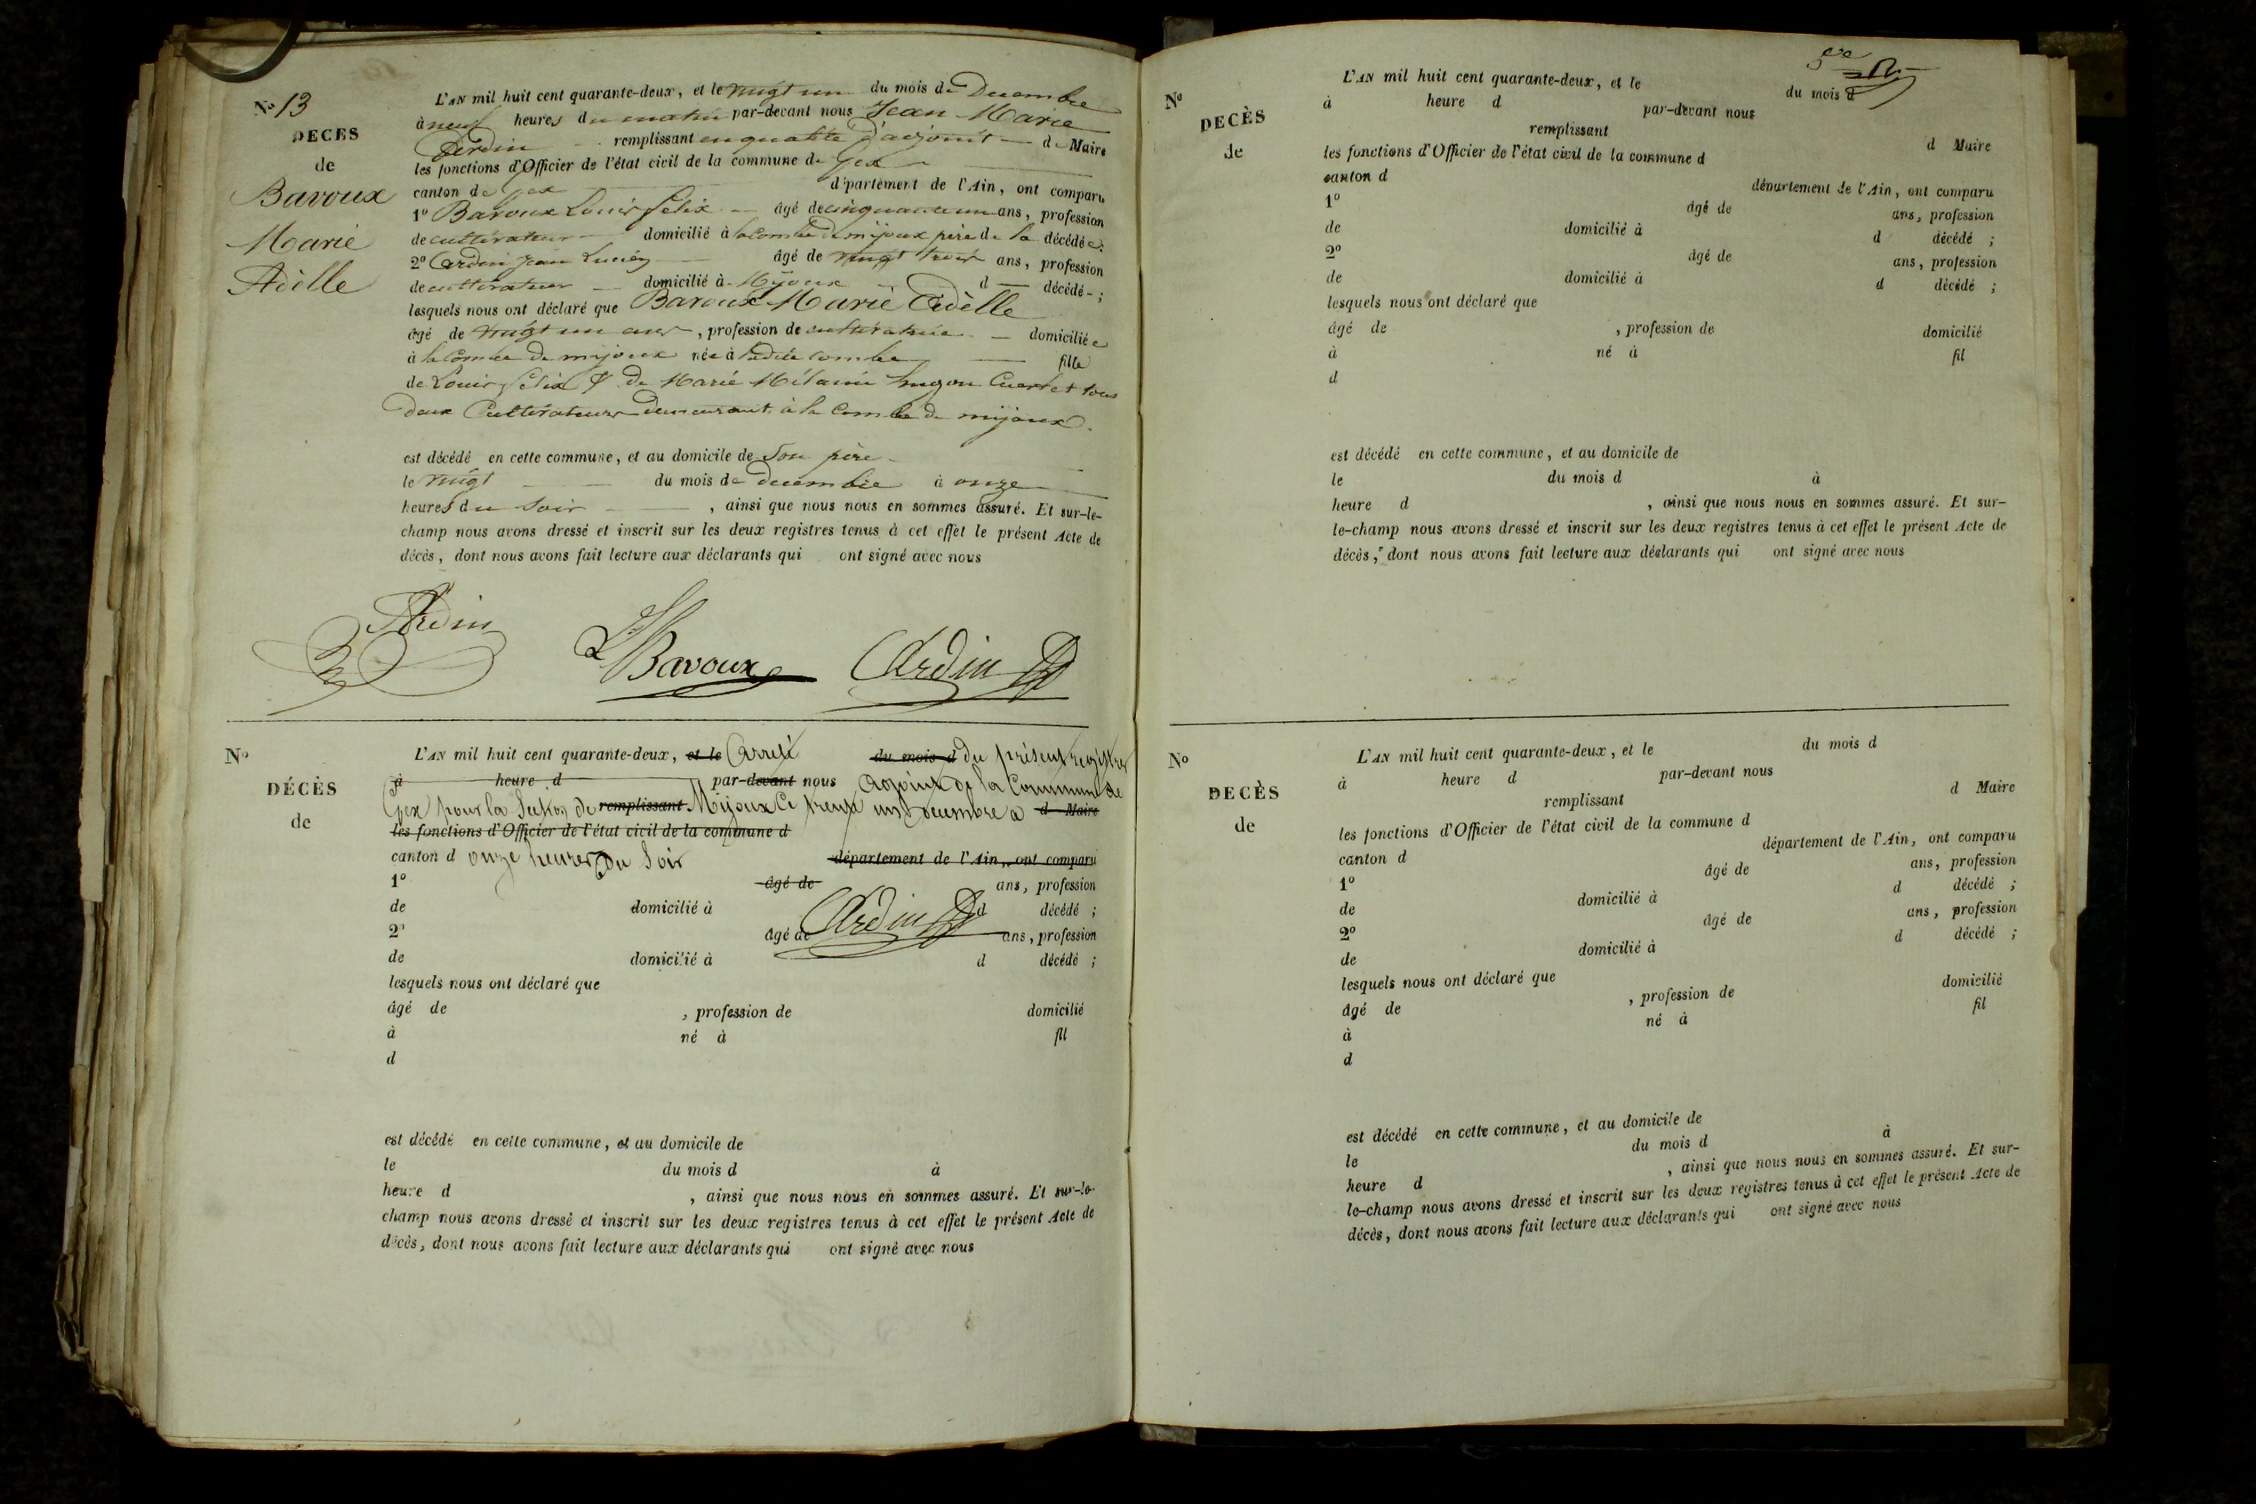 Nº 13
DÉCÈS
de
Bavoux
Marie
Adèlle
L'AN mil huit cent quarante-deux, et le vingt un du mois de Decembre
à neuf heures du matin par-devant nous Jean Marie
Ardin remplissant en qualité d'adjoint de Maire
les fonctions d'Officier de l'état civil de la commune de Gex
canton de Gex département de l'Ain, ont comparu
1º Bavoux Louis felix âgé de cinquante un ans, profession
de cultivateur domicilié à la combe de mijoux père de la décédée;
2º Ardin Jean Lucien âgé de vingt trois ans, profession
de cultivateur domicilié à Mijoux d décédé ;
lesquels nous ont déclaré que Bavoux Marie Adèlle
âgé de vingt un ans, profession de cultivatrice domiciliée
à la Combe de mijoux née à ladite combe fille
de Louis felix & de Marie Mélanie Cuertet tous
deux Cultivateurs demeurant à la Combe de mijoux.
est décédé en cette commune, et au domicile de Son père
le vingt du mois de decembre à onze
heures du Soir , ainsi que nous nous en sommes assuré. Et sur-le-
champ nous avons dressé et inscrit sur les deux registres tenus à cet effet le présent Acte de
décès, dont nous avons fait lecture aux déclarants qui ont signé avec nous
Ardin
Bavoux
Ardin
Nº
DÉCÈS
de
L'AN mil huit cent quarante-deux, et le Arreté du mois d du présent registre
à heure d par-devant nous adjoint de la Commune de
Gex pour la Section de remplissant Mijoux Ce trente un Decembre a d Maire
les fonctions d'Officier de l'état civil de la commune d
canton d onze heures du Soir département de l'Ain, ont comparu
1º âgé de ans, profession
de domicilié à d décédé ;
Ardin
2º âgé de ans, profession
de domicilié à d décédé ;
lesquels nous ont déclaré que
âgé de , profession de domicilié
à né à fil
d
est décédé en cette commune, et au domicile de
le du mois d à
heure d , ainsi que nous nous en sommes assuré. Et sur-le-
champ nous avons dressé et inscrit sur les deux registres tenus à cet effet le présent Acte de
décès, dont nous avons fait lecture aux déclarants qui ont signé avec nous
Nº
DECÈS
de
L'AN mil huit cent quarante-deux, et le du mois d
à heure d par-devant nous
remplissant d Maire
les fonctions d'Officier de l'état civil de la commune d
canton d département de l'Ain, ont comparu
1º âgé de ans, profession
de domicilié à d décédé ;
2º âgé de ans, profession
de domicilié à d décédé ;
lesquels nous ont déclaré que
âgé de , profession de domicilié
à né à fil
d
est décédé en cette commune, et au domicile de
le du mois d à
heure d , ainsi que nous nous en sommes assuré. Et sur-
le-champ nous avons dressé et inscrit sur les deux registres tenus à cet effet le présent Acte de
décès, dont nous avons fait lecture aux déclarants qui ont signé avec nous
Nº
DECÈS
de
L'AN mil huit cent quarante-deux, et le du mois d
à heure d par-devant nous
remplissant d Maire
les fonctions d'Officier de l'état civil de la commune d
canton d département de l'Ain, ont comparu
1º âgé de ans, profession
de domicilié à d décédé ;
2º âgé de ans, profession
de domicilié à d décédé ;
lesquels nous ont déclaré que
âgé de , profession de domicilié
à né à fil
d
est décédé en cette commune, et au domicile de
le du mois d à
heure d , ainsi que nous nous en sommes assuré. Et sur-
le-champ nous avons dressé et inscrit sur les deux registres tenus à cet effet le présent Acte de
décès, dont nous avons fait lecture aux déclarants qui ont signé avec nous